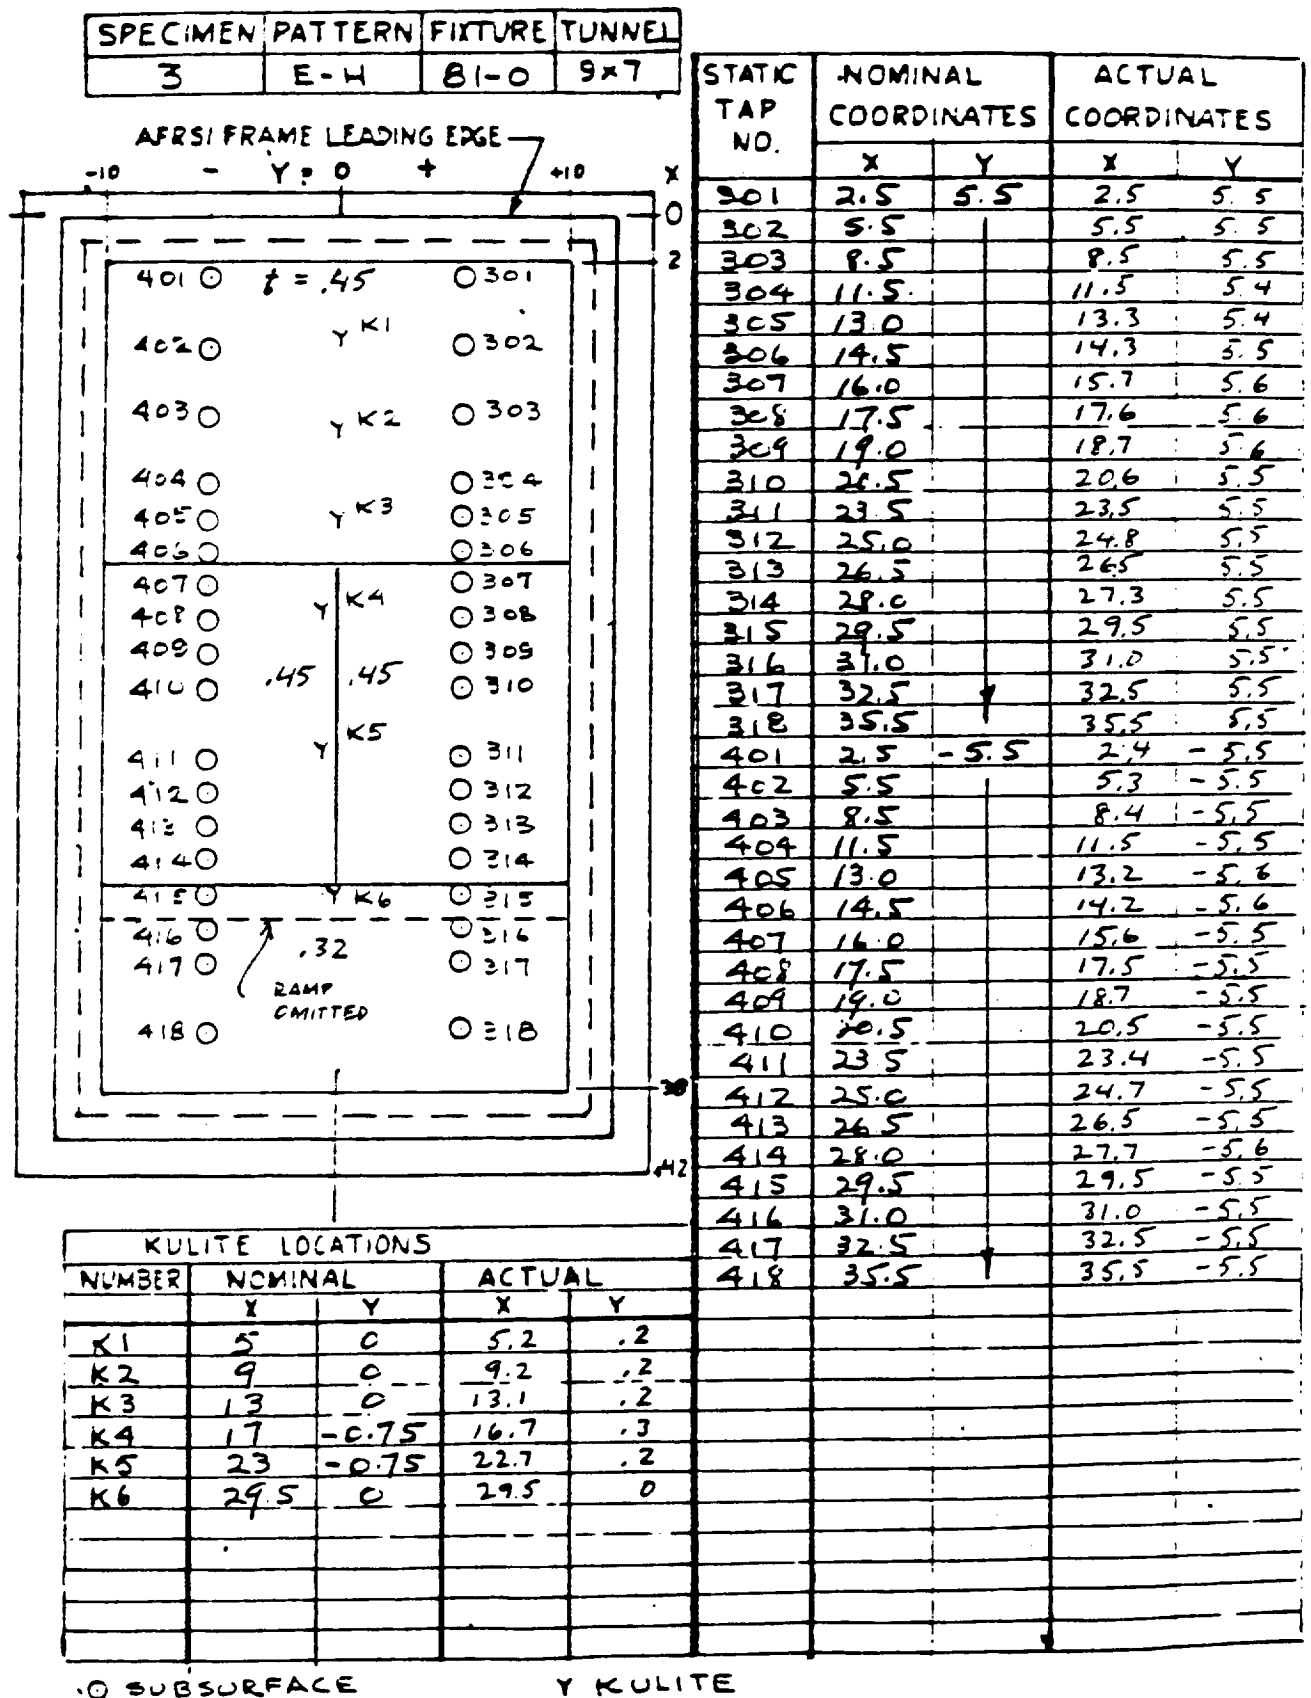 SPECIMEN PATTERN FIXTURE TUNNEL
3 E-H 81-0 9x7
AFRSI FRAME LEADING EDGE
-10 - Y = 0 + +10 X
0
2
401 t = .45 301
K1
402 302
403 K2 303
404 304
405 K3 305
406 306
407 K4 307
408 308
409 309
410 .45 .45 310
K5
411 311
412 312
413 313
414 314
415 K6 315
416 316
417 .32 317
RAMP
OMITTED
418 318
38
42
STATIC TAP NO. NOMINAL COORDINATES ACTUAL COORDINATES
X Y X Y
301 2.5 5.5 2.5 5.5
302 5.5 5.5 5.5
303 8.5 8.5 5.5
304 11.5 11.5 5.4
305 13.0 13.3 5.4
306 14.5 14.3 5.5
307 16.0 15.7 5.6
308 17.5 17.6 5.6
309 19.0 18.7 5.6
310 20.5 20.6 5.5
311 23.5 23.5 5.5
312 25.0 24.8 5.5
313 26.5 26.5 5.5
314 28.0 27.3 5.5
315 29.5 29.5 5.5
316 31.0 31.0 5.5
317 32.5 32.5 5.5
318 35.5 35.5 5.5
401 2.5 -5.5 2.4 -5.5
402 5.5 5.3 -5.5
403 8.5 8.4 -5.5
404 11.5 11.5 -5.5
405 13.0 13.2 -5.6
406 14.5 14.2 -5.6
407 16.0 15.6 -5.5
408 17.5 17.5 -5.5
409 19.0 18.7 -5.5
410 20.5 20.5 -5.5
411 23.5 23.4 -5.5
412 25.0 24.7 -5.5
413 26.5 26.5 -5.5
414 28.0 27.7 -5.6
415 29.5 29.5 -5.5
416 31.0 31.0 -5.5
417 32.5 32.5 -5.5
418 35.5 35.5 -5.5
KULITE LOCATIONS
NUMBER NOMINAL ACTUAL
X Y X Y
K1 5 0 5.2 .2
K2 9 0 9.2 .2
K3 13 0 13.1 .2
K4 17 -0.75 16.7 .3
K5 23 -0.75 22.7 .2
K6 29.5 0 29.5 0
⊙ SUBSURFACE Y KULITE